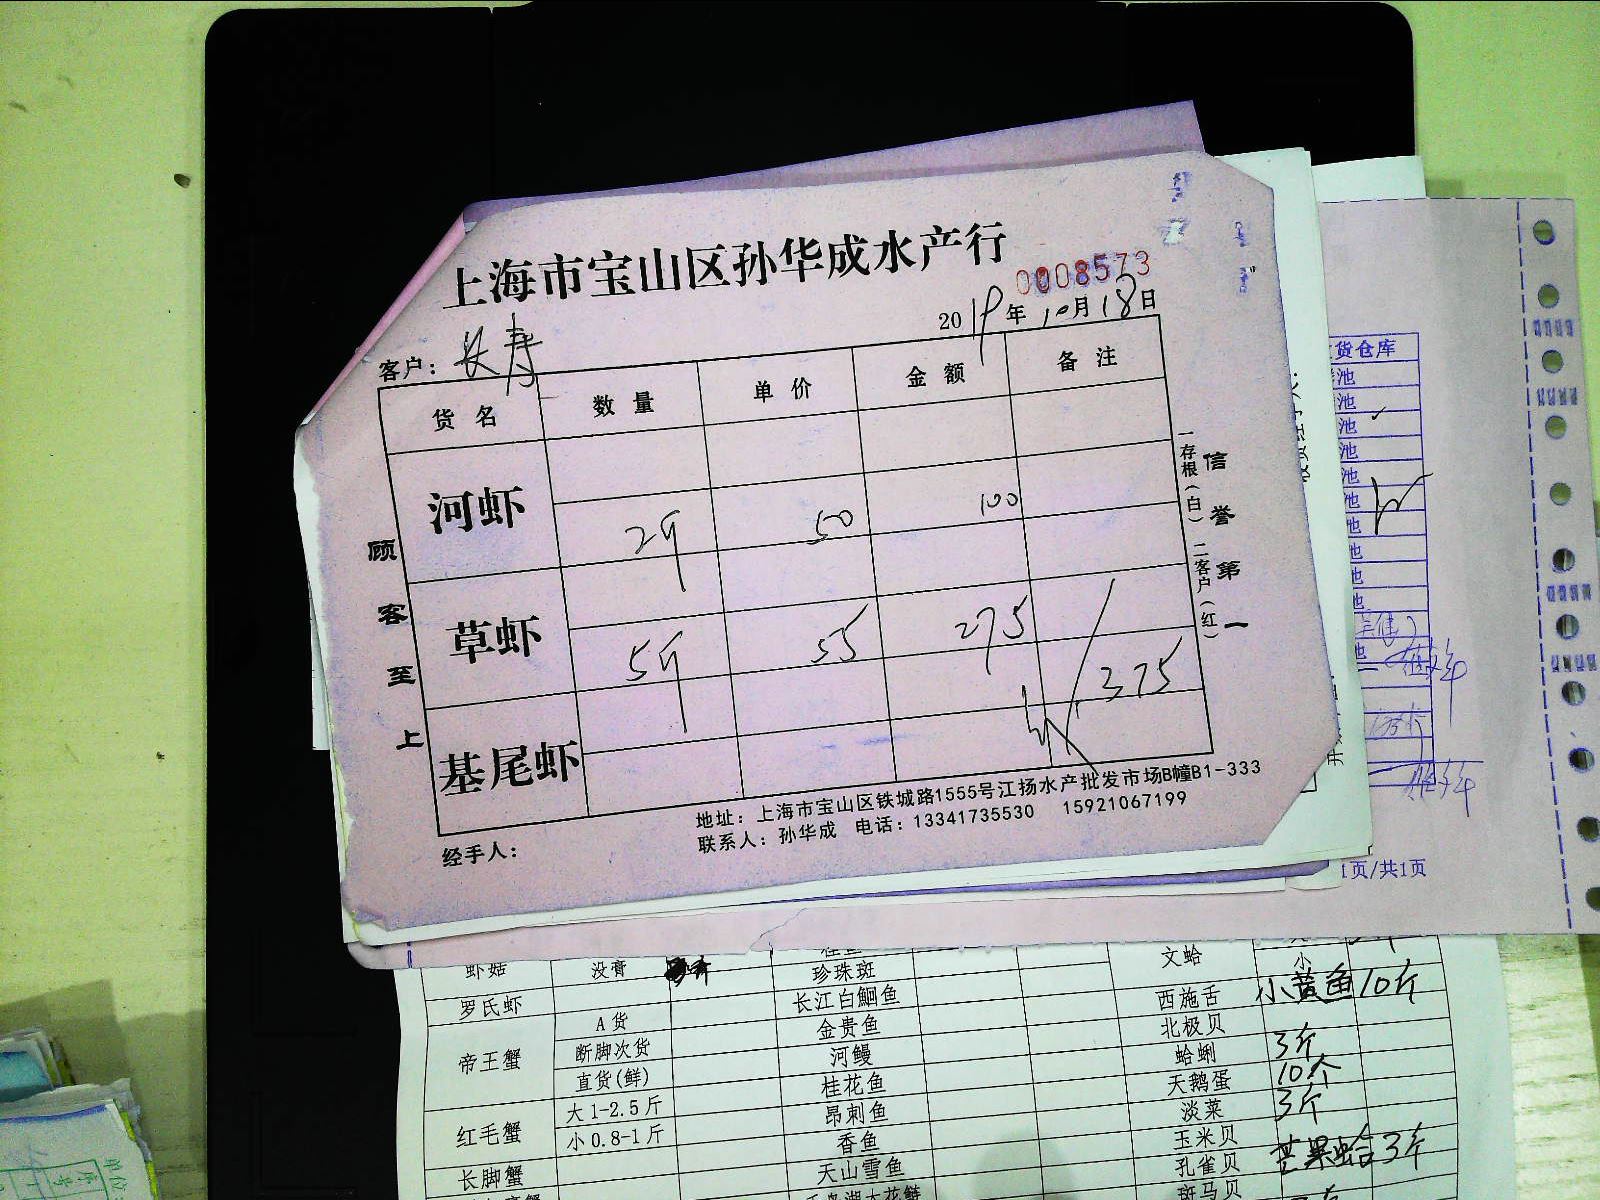 上海市宝山区孙华成水产行
0008573
2019年10月18日
客户：长寿
货名 数量 单价 金额 备注
河虾
2斤 50 100
草虾
5斤 55 275
375
基尾虾
顾客至上
一存根（白） 二客户（红）
信誉第一
地址：上海市宝山区铁城路1555号江扬水产批发市场B幢B1-333
联系人：孙华成 电话：13341735530 15921067199
经手人：
货仓库
池
池
池
池
池
池
池
池
池
池
1页/共1页
虾菇 没膏 珍珠斑 文蛤 小
罗氏虾 长江白鮰鱼 西施舌 小黄鱼10斤
帝王蟹 A货 金贵鱼 北极贝
断脚次货 河鳗 蛤蜊 3斤
直货(鲜) 桂花鱼 天鹅蛋 10个
红毛蟹 大1-2.5斤 昂刺鱼 淡菜 3斤
小0.8-1斤 香鱼 玉米贝
长脚蟹 天山雪鱼 孔雀贝 芒果蛤3斤
斑马贝